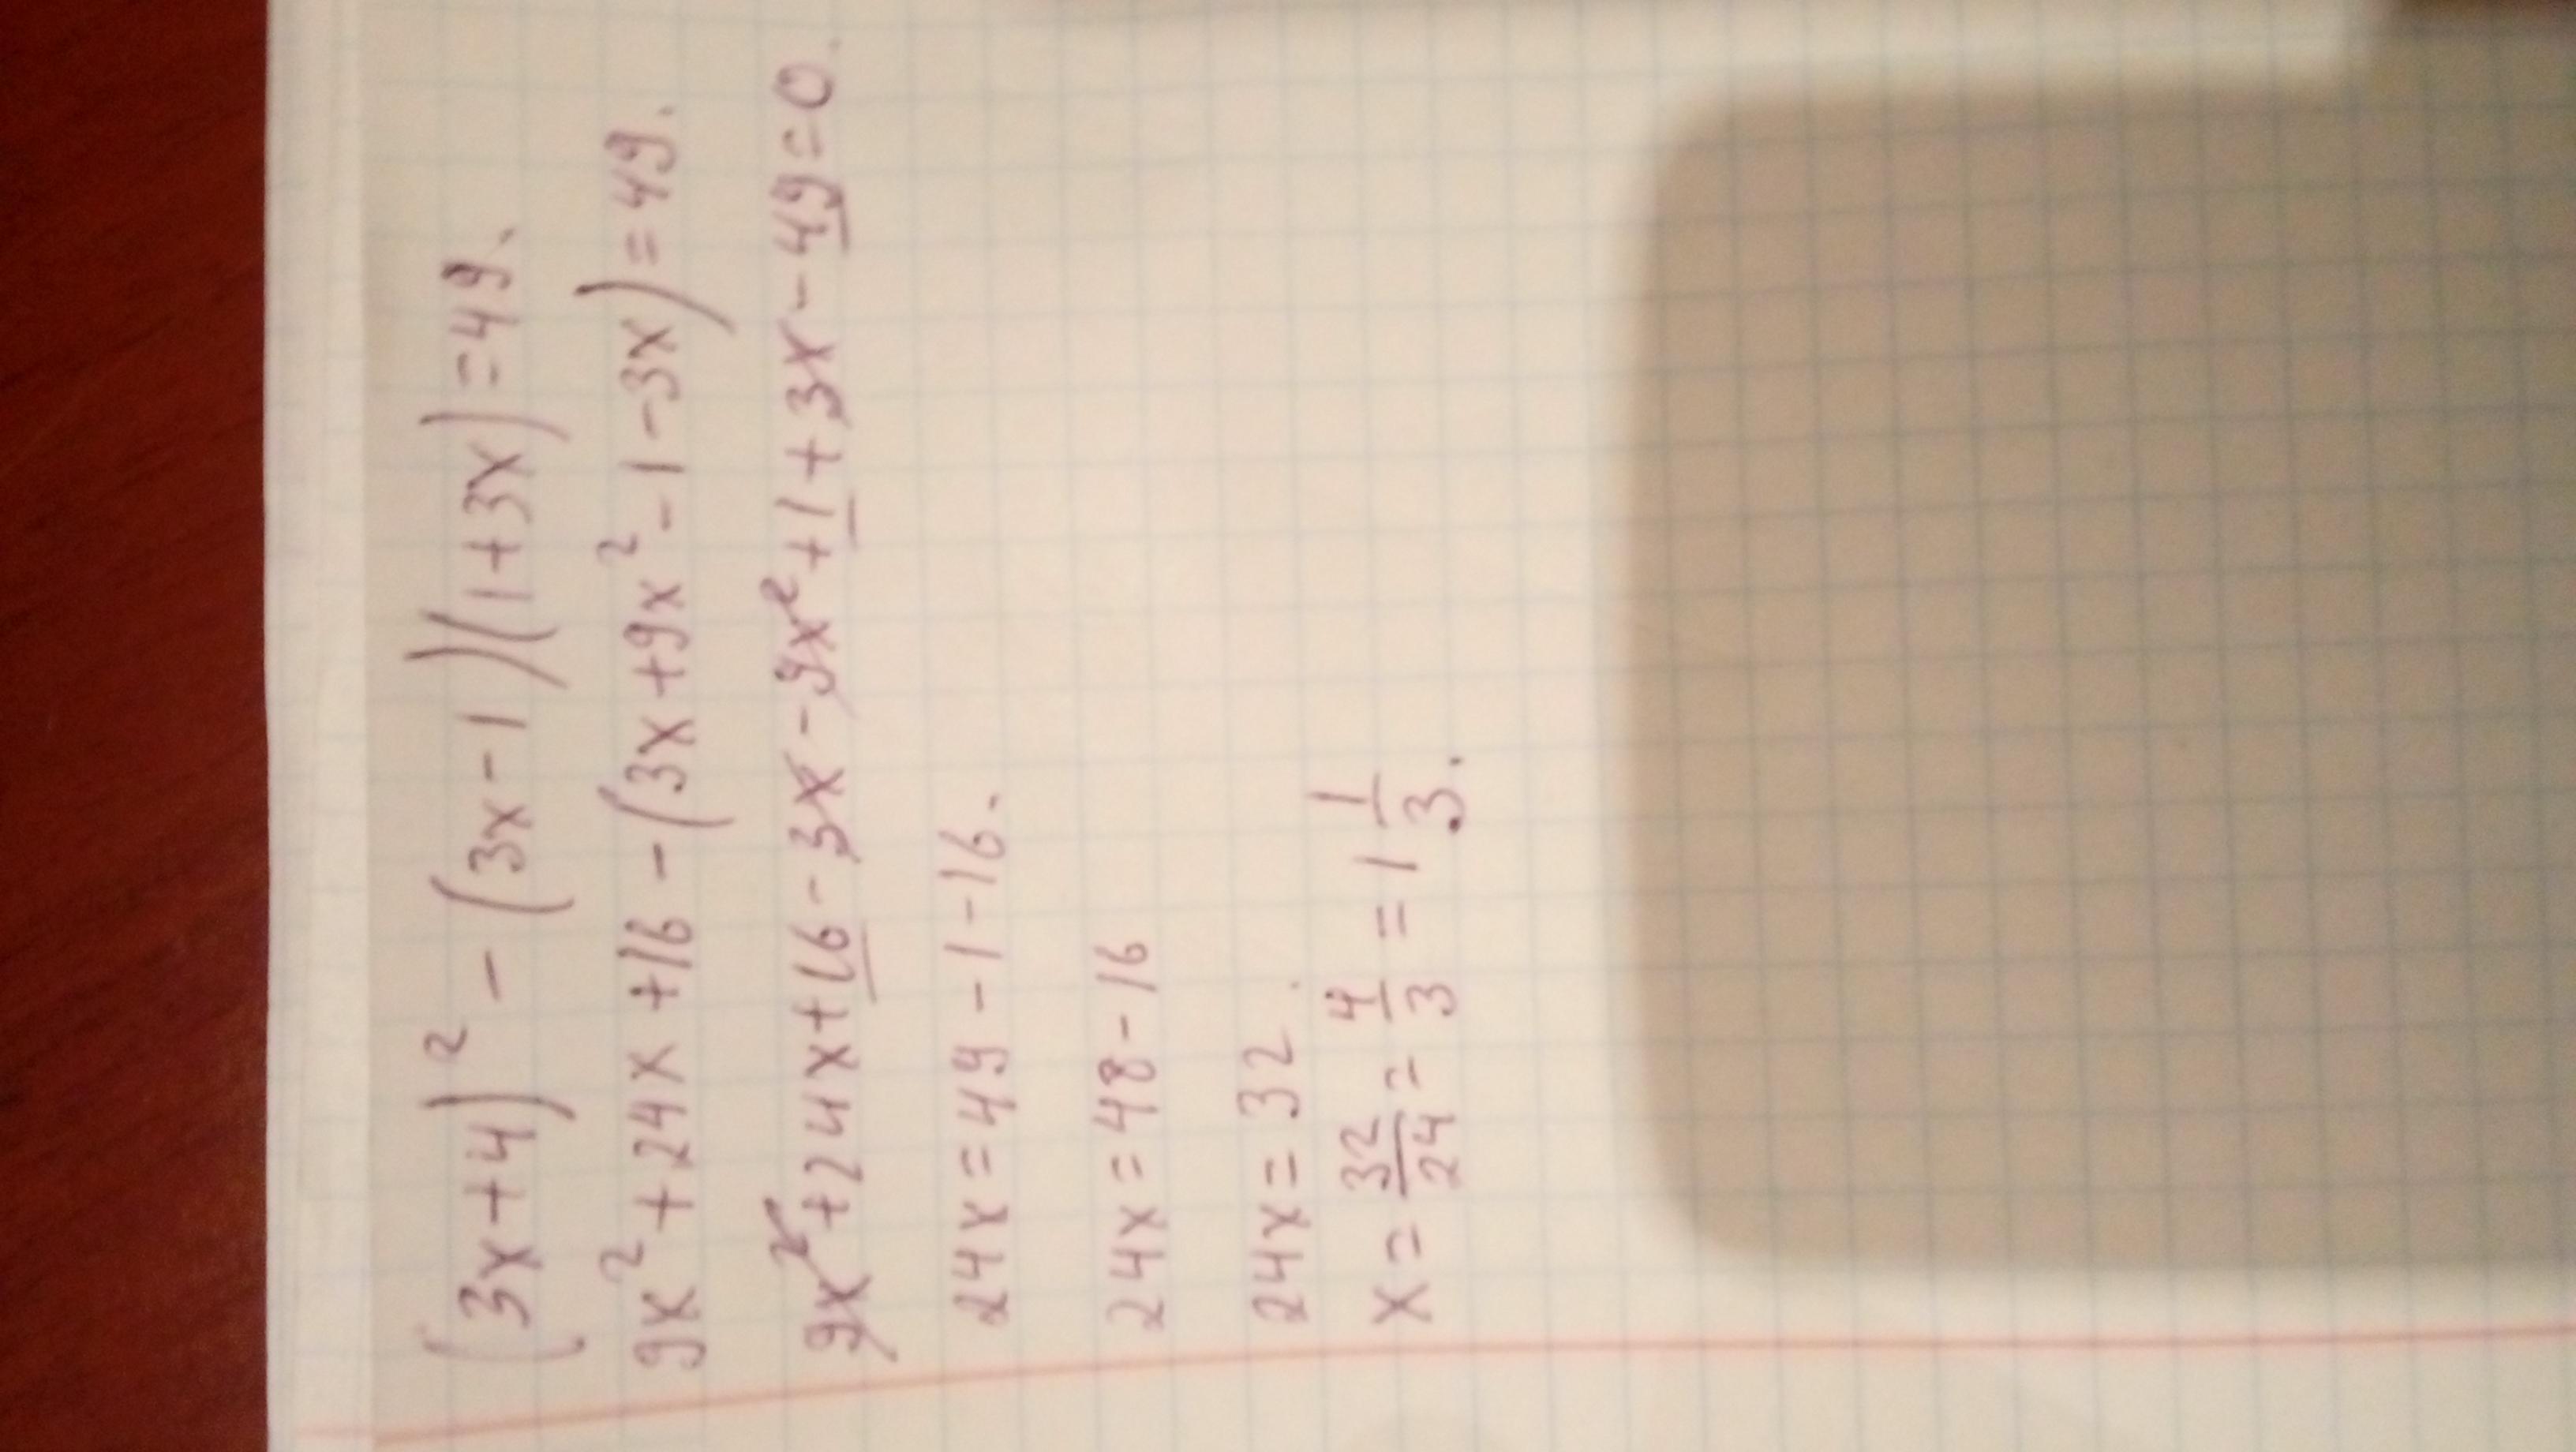 (3x+4)² - (3x-1)(1+3x)=49.
9x²+24x+16-(3x+9x²-1-3x)=49.
9x²+24x+16-3x-9x²+1+3x-49=0.
24x=49-1-16.
24x=48-16
24x=32.
x=32/24=4/3=1 1/3.